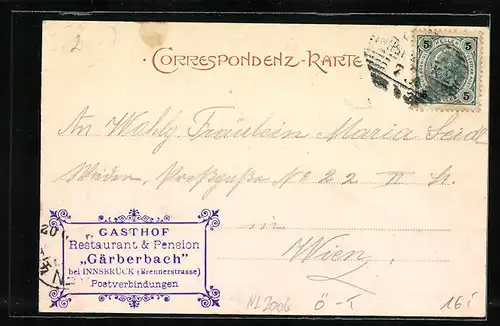 2
CORRESPONDENZ-KARTE
5 5
5 5
An Wohlg Fräulein Maria Seidl
Wieden, Preßgaße No 22 II St.
in
Wien
GASTHOF
Restaurant & Pension
„Gärberbach”
bei INNSBRUCK (Brennerstrasse)
Postverbindungen
NL2006 Ö-T 16.-